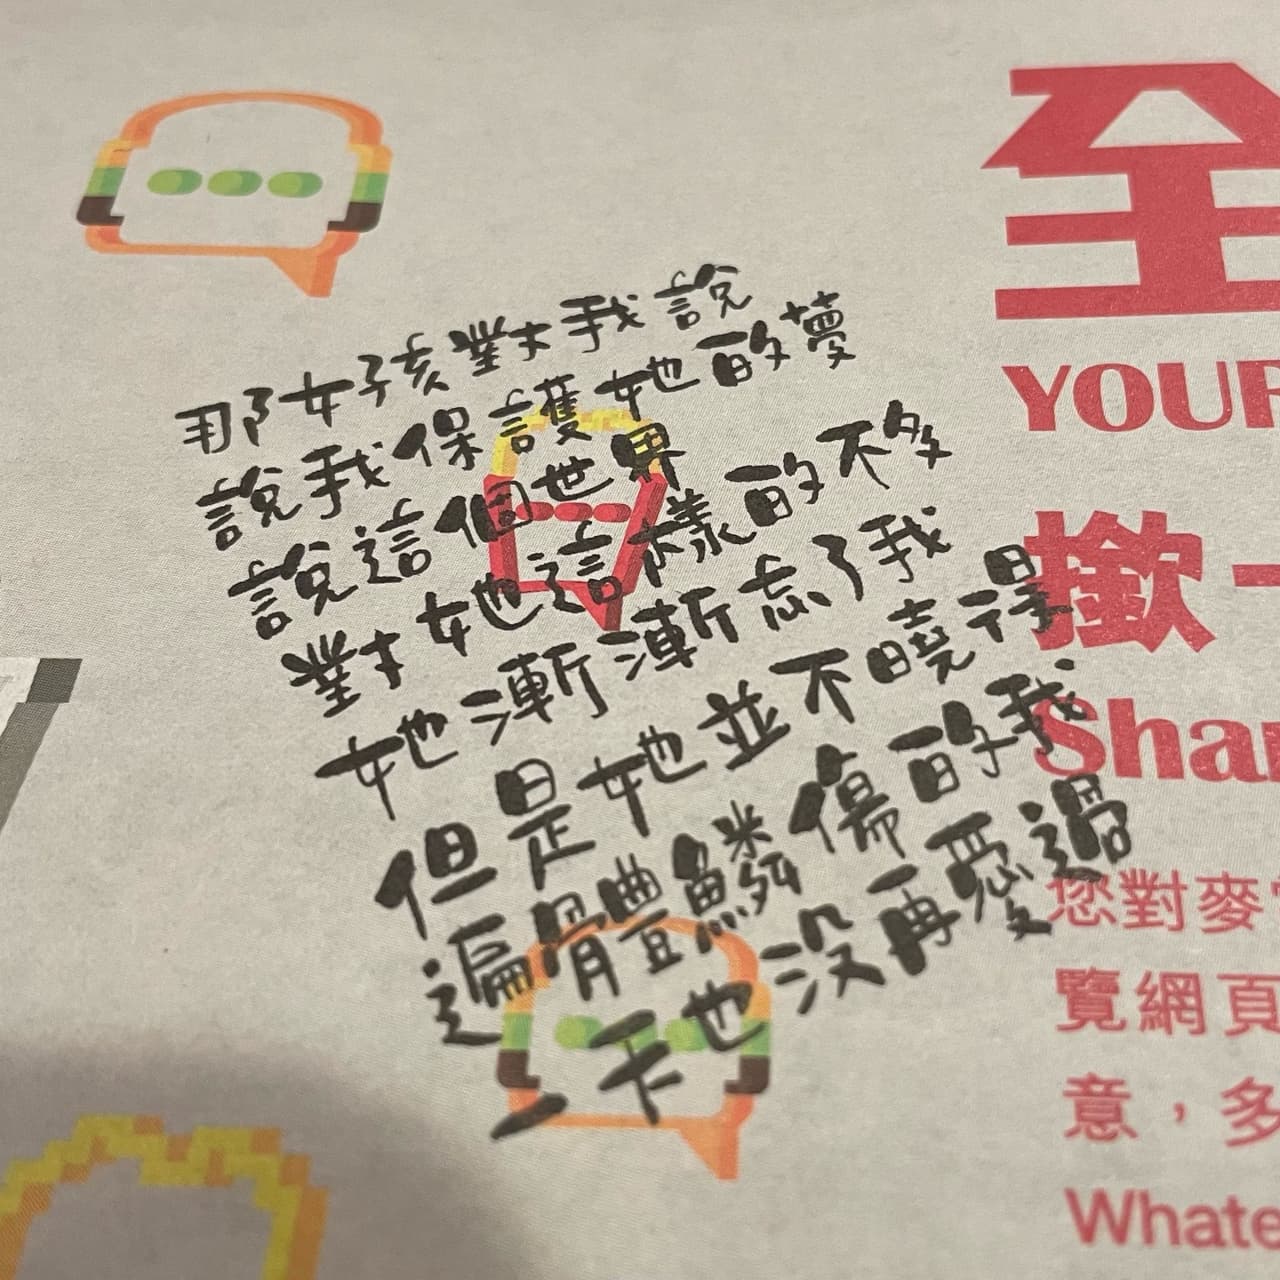 那女孩對我說
說我保護她的夢
說這個世界
對她這樣的不多
她漸漸忘了我
但是她並不曉得
遍體鱗傷的我
一天也沒再愛過
全
YOUR
撳一
Shar
您對麥當
覽網頁
意，多
Whate